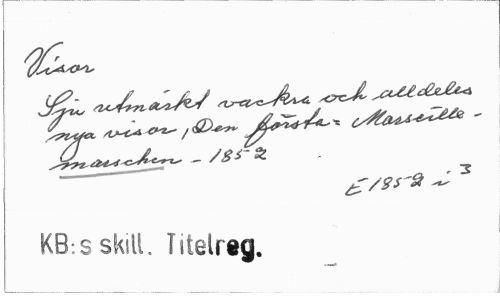 Visor
Sju utmärkt vackra och alldeles
nya visor, Den första = Marseille-
marschen - 1852
E 1852 i 3
KB:s skill. Titelreg.